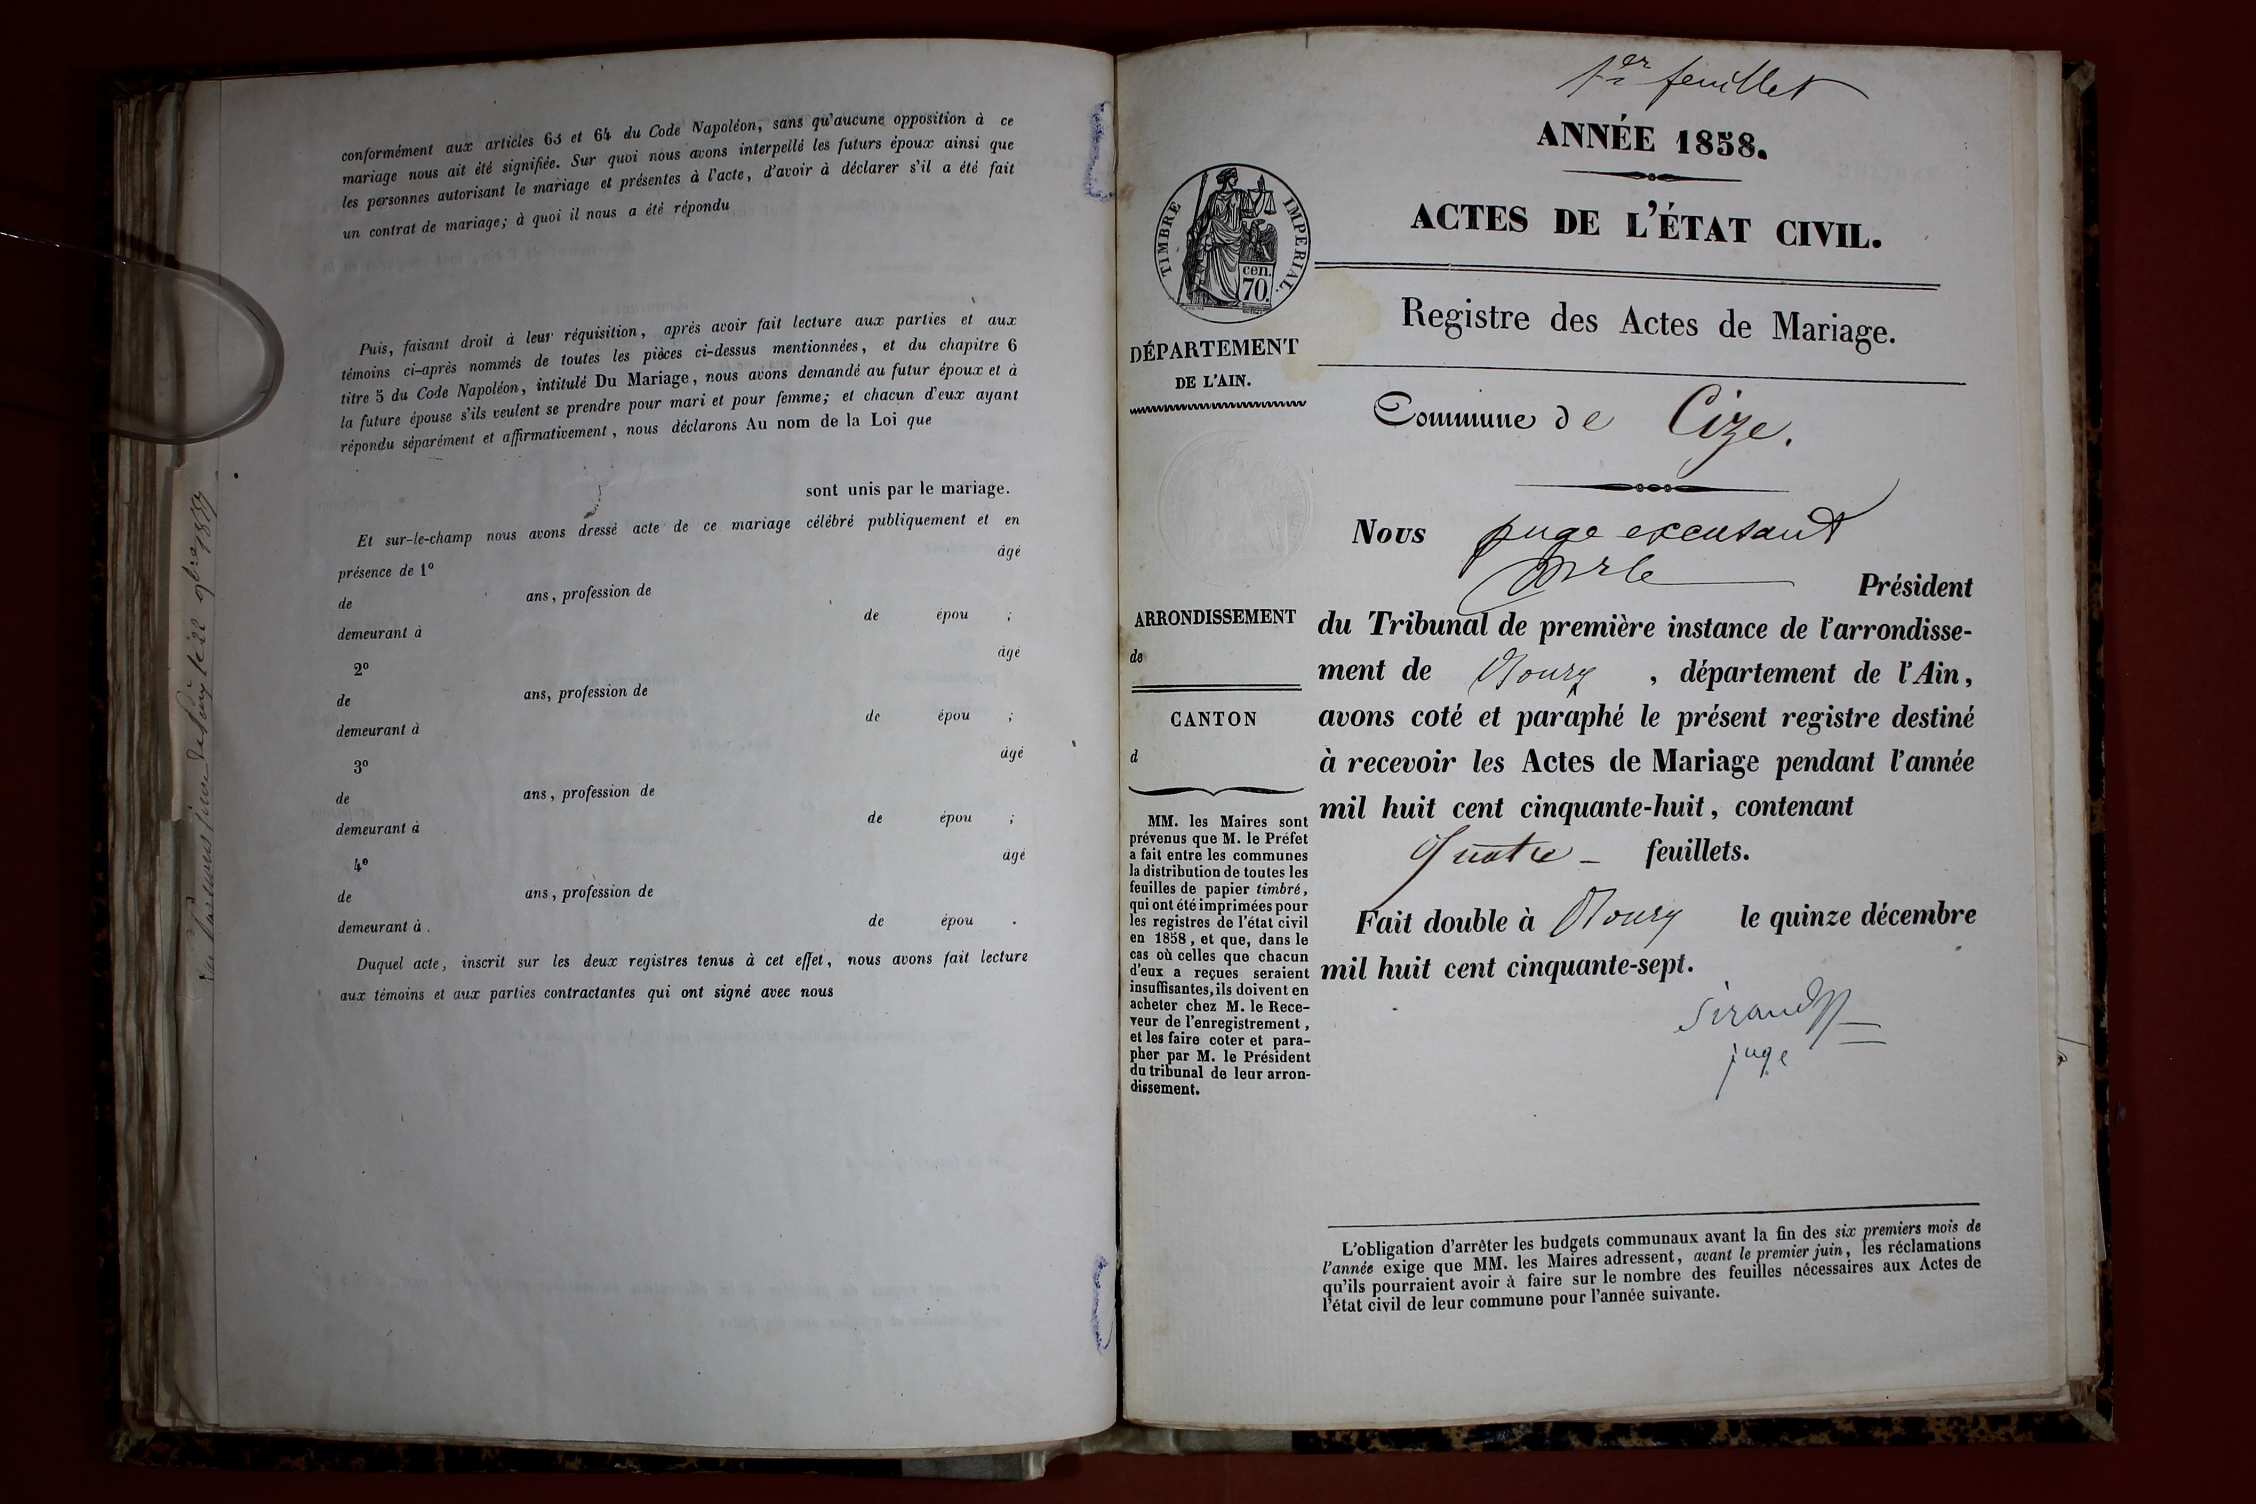 conformément aux articles 63 et 64 du Code Napoléon, sans qu'aucune opposition à ce
mariage nous ait été signifiée. Sur quoi nous avons interpellé les futurs époux ainsi que
les personnes autorisant le mariage et présentes à l'acte, d'avoir à déclarer s'il a été fait
un contrat de mariage; à quoi il nous a été répondu
Puis, faisant droit à leur réquisition, après avoir fait lecture aux parties et aux
témoins ci-après nommés de toutes les pièces ci-dessus mentionnées, et du chapitre 6
titre 5 du Code Napoléon, intitulé Du Mariage, nous avons demandé au futur époux et à
la future épouse s'ils veulent se prendre pour mari et pour femme; et chacun d'eux ayant
répondu séparément et affirmativement, nous déclarons Au nom de la Loi que
sont unis par le mariage.
Et sur-le-champ nous avons dressé acte de ce mariage célébré publiquement et en
présence de 1º âgé
de ans, profession de
demeurant à de épou ;
2º âgé
de ans, profession de
demeurant à de épou ;
3º âgé
de ans, profession de
demeurant à de épou ;
4º âgé
de ans, profession de
demeurant à . de épou .
Duquel acte, inscrit sur les deux registres tenus à cet effet, nous avons fait lecture
aux témoins et aux parties contractantes qui ont signé avec nous
1er feuillet
ANNÉE 1858.
ACTES DE L'ÉTAT CIVIL.
TIMBRE IMPERIAL.
cen.
70.
Registre des Actes de Mariage.
DÉPARTEMENT
DE L'AIN.
Commune de Cize.
Nous juge excusant
Mr le
Président
du Tribunal de première instance de l'arrondisse-
ment de Bourg , département de l'Ain,
avons coté et paraphé le présent registre destiné
à recevoir les Actes de Mariage pendant l'année
mil huit cent cinquante-huit, contenant
Quatre - feuillets.
Fait double à Bourg le quinze décembre
mil huit cent cinquante-sept.
juge
ARRONDISSEMENT
de
CANTON
d
MM. les Maires sont
prévenus que M. le Préfet
a fait entre les communes
la distribution de toutes les
feuilles de papier timbré,
qui ont été imprimées pour
les registres de l'état civil
en 1858, et que, dans le
cas où celles que chacun
d'eux a reçues seraient
insuffisantes, ils doivent en
acheter chez M. le Rece-
veur de l'enregistrement,
et les faire coter et para-
pher par M. le Président
du tribunal de leur arron-
dissement.
L'obligation d'arrêter les budgets communaux avant la fin des six premiers mois de
l'année exige que MM. les Maires adressent, avant le premier juin, les réclamations
qu'ils pourraient avoir à faire sur le nombre des feuilles nécessaires aux Actes de
l'état civil de leur commune pour l'année suivante.